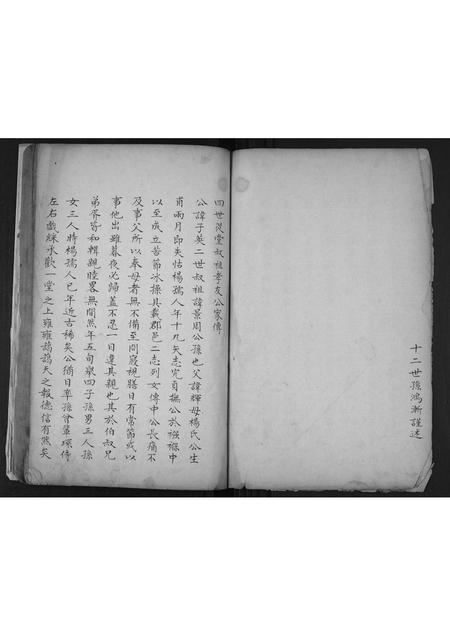 十二世孫鴻漸謹述
四世從堂叔祖孝友公家傳
公諱子英二世叔祖諱景周公孫也父諱輝母楊氏公生
甫兩月即失怙楊孺人年十九矢志完貞撫公於襁褓中
以至成立苦節冰操具載郡邑二志列女傳中公長痛不
及事父所以奉母者無不備至問寢視膳日有常節或以
事他出雖暮夜必歸蓋不忍一日違其親也其於伯叔兄
弟胥和輯親睦畧無間然年五旬餘四子孫男三人孫
女三人時楊孺人已年近古稀矣公猶日率孫曾輩環侍
左右戲綵承歡一堂之上雍雍藹藹天之報德信有然矣